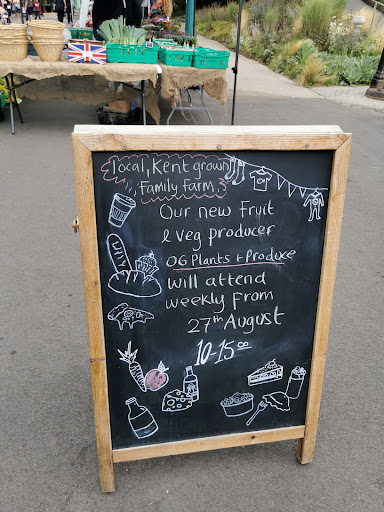 Local, Kent grown
Family farm,
Our new Fruit
& veg producer
OG Plants + Produce
will attend
weekly From
27th August
10-15:00